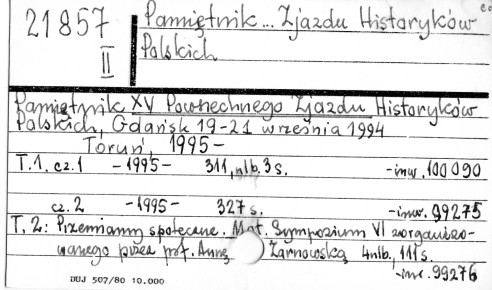 21857
II
Pamiętnik... Zjazdu Historyków
Polskich
Pamiętnik XV Powszechnego Zjazdu Historyków
Polskich, Gdańsk 19-21 września 1994
Toruń, 1995-
T.1. cz.1 -1995- 311, nlb. 3 s. -inw. 100090
cz. 2 -1995- 327 s. -inw. 99275
T. 2: Przemiany społeczne. Mat. Sympozjum VI zorganizo-
wanego przez prof. Annę Żarnowską 4nlb. 111 s.
-inw. 99276
DUJ 507/80 10.000